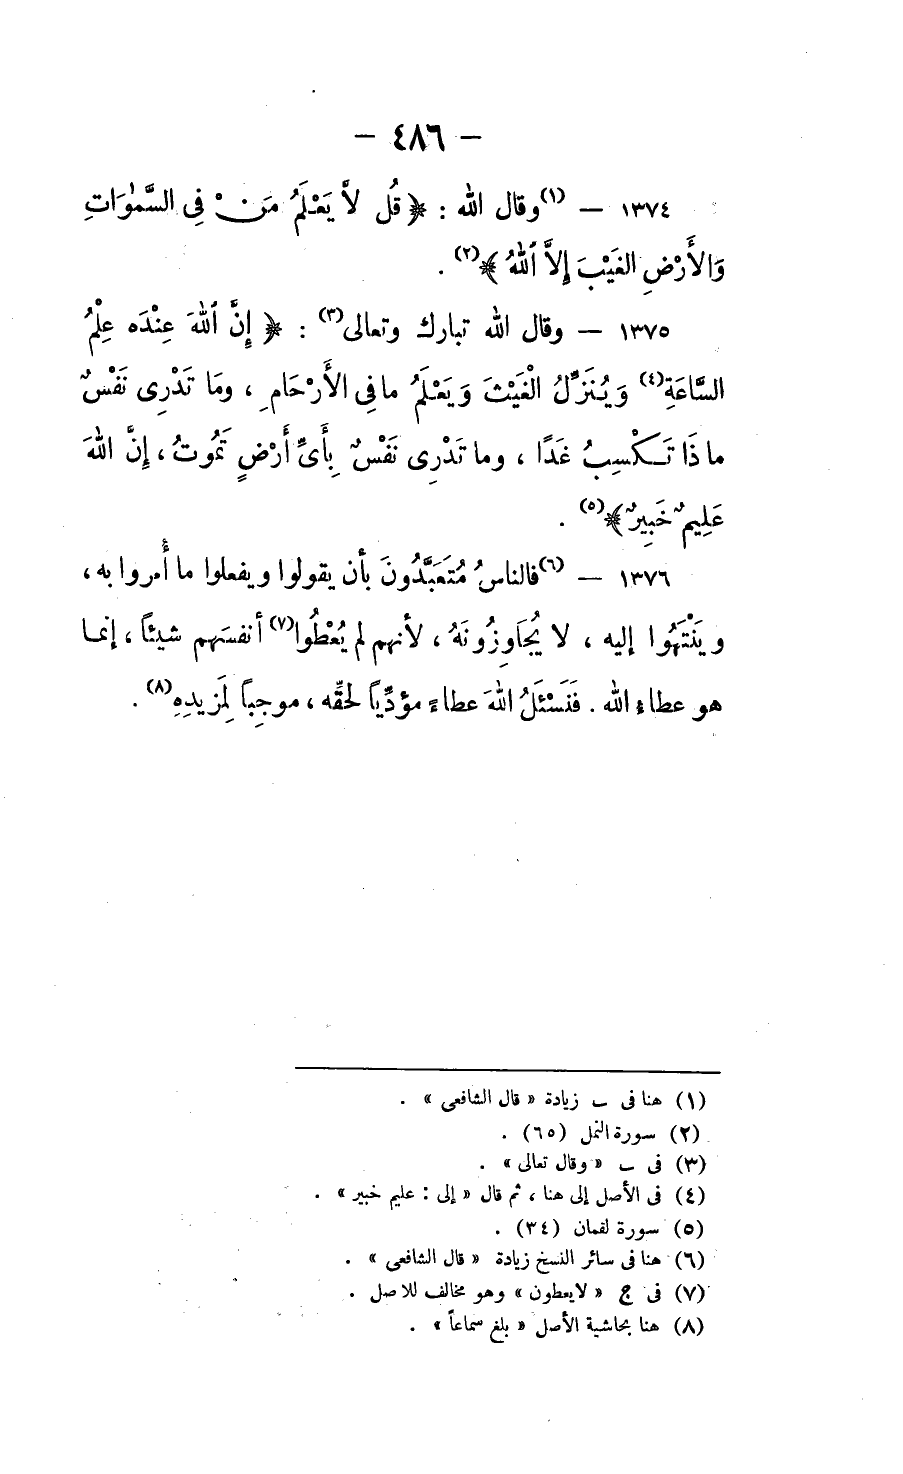 — ٤٨٦ —
١٣٧٤ — (١)وقال الله : ﴿ قُل لاَّ يَعْلَمُ مَنْ فِى السَّمٰوَاتِ
وَالأَرْضِ الغَيْبَ إِلاَّ اللهُ ﴾(٢) .
١٣٧٥ — وقال الله تبارك وتعالى(٣) : ﴿ إِنَّ اللهَ عِنْدَه عِلْمُ
السَّاعَةِ(٤) وَيُنَزِّلُ الْغَيْثَ وَيَعْلَمُ مافِى الأَرْحَامِ ، ومَا تَدْرِى نَفْسٌ
ماذَا تَكْسِبُ غَدًا ، وما تَدْرِى نَفْسٌ بِأَىِّ أَرْضٍ تَمُوتُ ، إِنَّ اللهَ
عَلِيمٌ خَبِيرٌ ﴾(٥) .
١٣٧٦ — (٦)فالناسُ مُتَعَبَّدُونَ بأن يقولوا ويفعلوا ما أُمروا به ،
وينْتَهُوا إليه ، لا يُجَاوِزُونَهُ ، لأنهم لم يُعْطُوا(٧) أنفسَهم شيئاً ، إنما
هو عطاء الله . فَنَسْئَلُ اللهَ عطاءً مؤدِّياً لحقِّه ، موجِباً لِمَزيدِهِ(٨) .
(١) هنا فى ب زيادة « قال الشافعى » .
(٢) سورة النمل (٦٥) .
(٣) فى ب « وقال تعالى » .
(٤) فى الأصل إلى هنا ، ثم قال « إلى : عليم خبير » .
(٥) سورة لقمان (٣٤) .
(٦) هنا فى سائر النسخ زيادة « قال الشافعى » .
(٧) فى ج « لايعطون » وهو مخالف للاصل .
(٨) هنا بحاشية الأصل « بلغ سماعاً » .